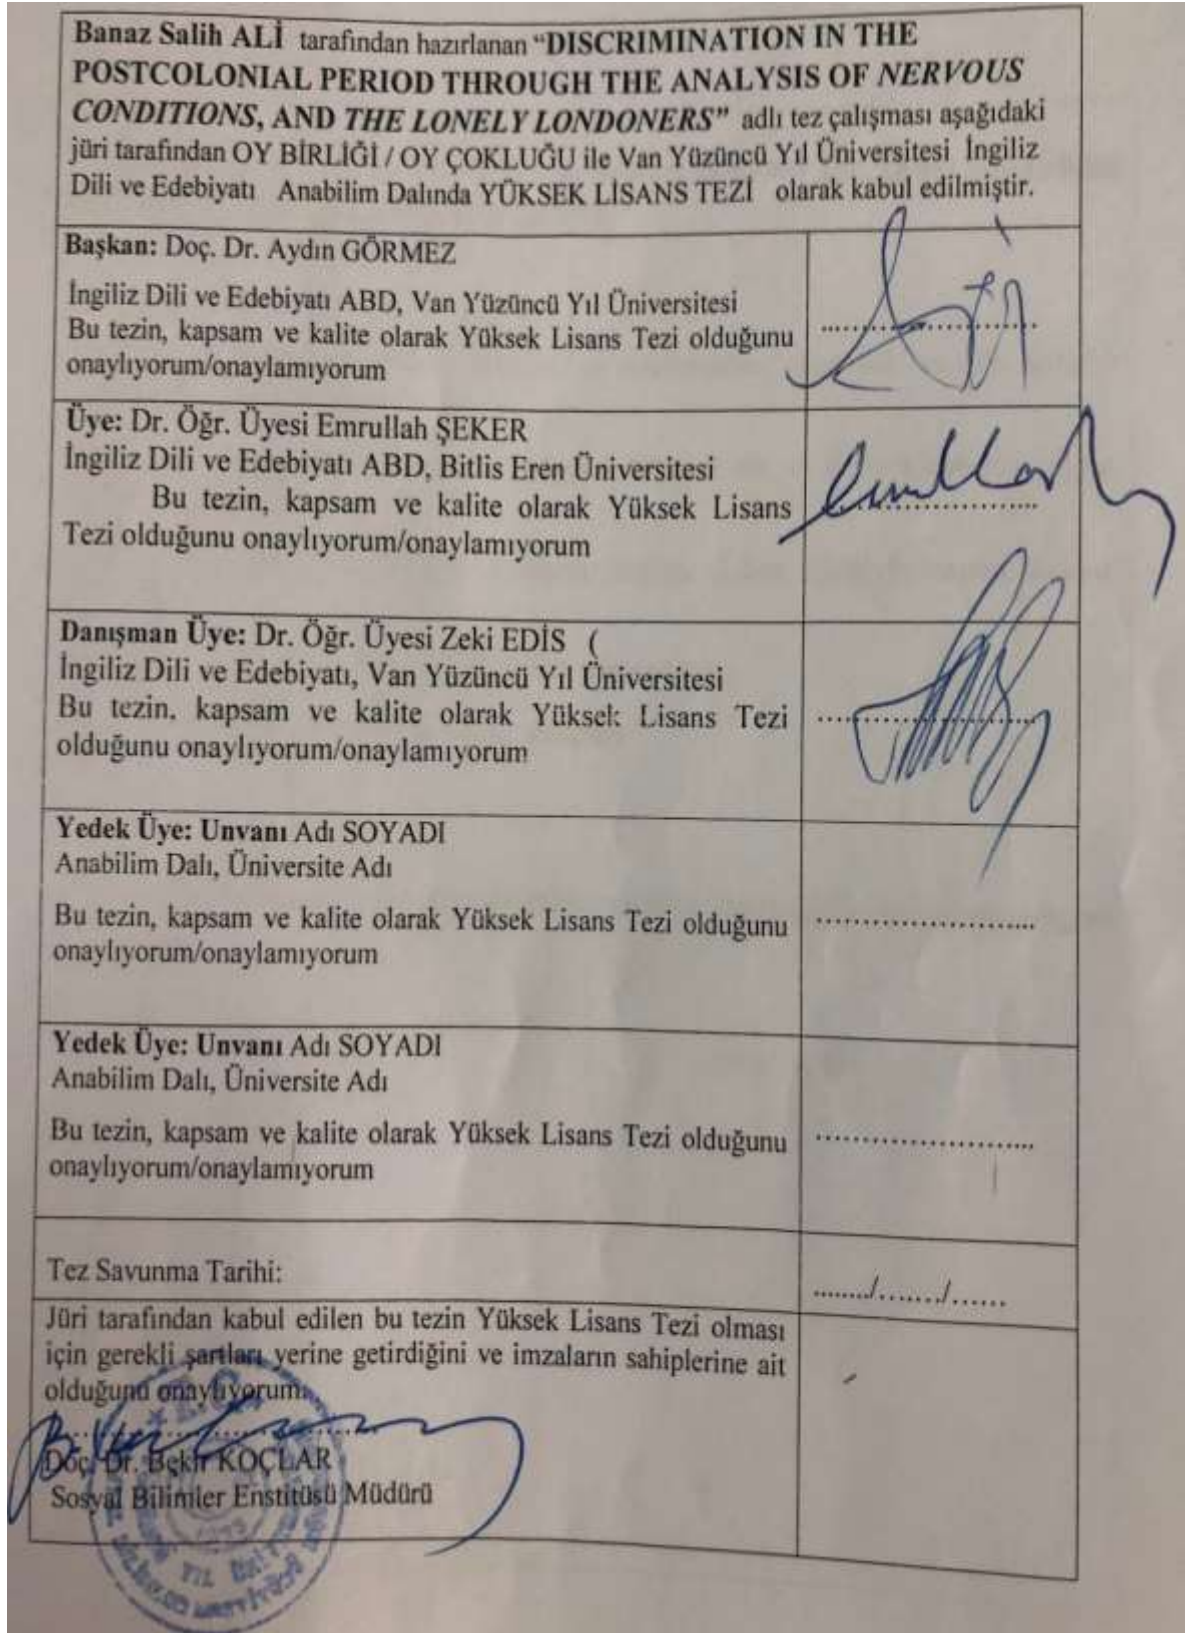 Banaz Salih ALİ tarafından hazırlanan “DISCRIMINATION IN THE
POSTCOLONIAL PERIOD THROUGH THE ANALYSIS OF NERVOUS
CONDITIONS, AND THE LONELY LONDONERS” adlı tez çalışması aşağıdaki
jüri tarafından OY BİRLİĞİ / OY ÇOKLUĞU ile Van Yüzüncü Yıl Üniversitesi İngiliz
Dili ve Edebiyatı Anabilim Dalında YÜKSEK LİSANS TEZİ olarak kabul edilmiştir.
Başkan: Doç. Dr. Aydın GÖRMEZ
İngiliz Dili ve Edebiyatı ABD, Van Yüzüncü Yıl Üniversitesi
Bu tezin, kapsam ve kalite olarak Yüksek Lisans Tezi olduğunu
onaylıyorum/onaylamıyorum
Üye: Dr. Öğr. Üyesi Emrullah ŞEKER
İngiliz Dili ve Edebiyatı ABD, Bitlis Eren Üniversitesi
Bu tezin, kapsam ve kalite olarak Yüksek Lisans
Tezi olduğunu onaylıyorum/onaylamıyorum
Danışman Üye: Dr. Öğr. Üyesi Zeki EDİS (
İngiliz Dili ve Edebiyatı, Van Yüzüncü Yıl Üniversitesi
Bu tezin, kapsam ve kalite olarak Yüksek Lisans Tezi
olduğunu onaylıyorum/onaylamıyorum
Yedek Üye: Unvanı Adı SOYADI
Anabilim Dalı, Üniversite Adı
Bu tezin, kapsam ve kalite olarak Yüksek Lisans Tezi olduğunu
onaylıyorum/onaylamıyorum
Yedek Üye: Unvanı Adı SOYADI
Anabilim Dalı, Üniversite Adı
Bu tezin, kapsam ve kalite olarak Yüksek Lisans Tezi olduğunu
onaylıyorum/onaylamıyorum
Tez Savunma Tarihi: ......../......./......
Jüri tarafından kabul edilen bu tezin Yüksek Lisans Tezi olması
için gerekli şartları yerine getirdiğini ve imzaların sahiplerine ait
olduğunu onaylıyorum.
Doç. Dr. Bekir KOÇLAR
Sosyal Bilimler Enstitüsü Müdürü